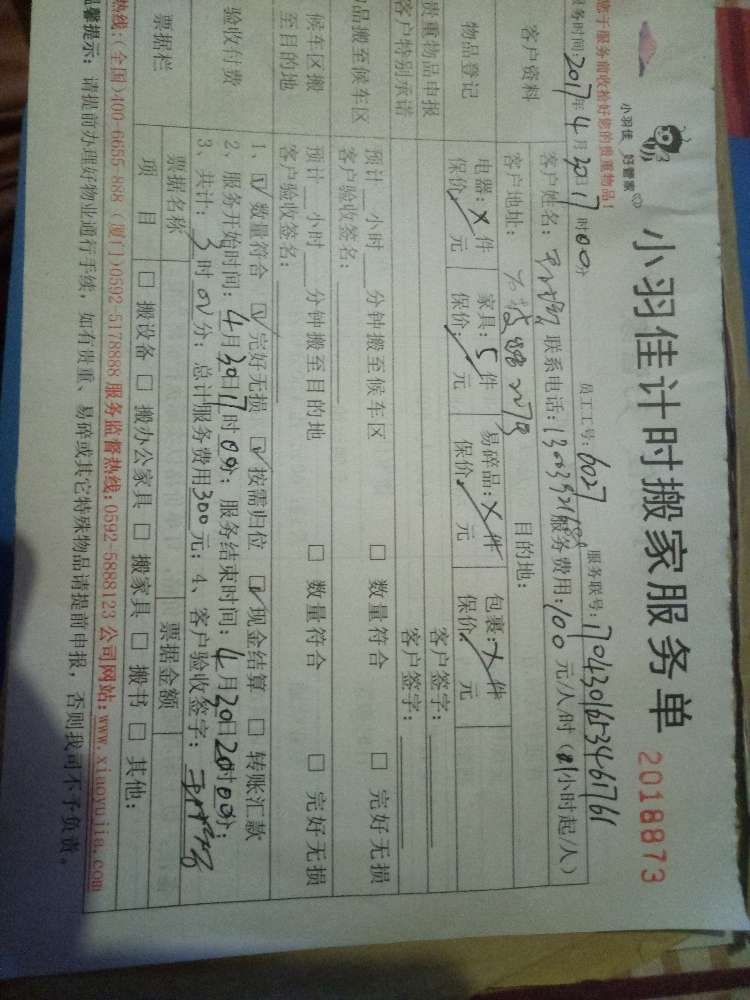 小羽佳计时搬家服务单 2018873
小羽佳 好管家
您于服务前收拾好您的贵重物品!
员工工号:6027 服务联号:
服务时间:2017年4月30日17时00分
客户资料 客户姓名: 联系电话: 服务费用:100元/人/时(小时起/人)
客户地址: 目的地:
物品登记 电器:X件 家具:5件 易碎品:X件 包裹:X件
保价: 元 保价: 元 保价: 元 保价: 元
贵重物品申报 客户签字:
客户特别承诺 客户签字:
品搬至候车区 预计 小时 分钟搬至候车区 □ 数量符合 □ 完好无损
客户验收签名:
候车区搬至目的地 预计 小时 分钟搬至目的地 □ 数量符合 □ 完好无损
客户验收签名:
验收付费 1、☑ 数量符合 ☑ 完好无损 ☑ 按需归位 ☑ 现金结算 □ 转账汇款
2、服务开始时间:4月30日17时00分;服务结束时间:4月30日20时00分;
3、共计:3时00分;总计服务费用300元;4、客户验收签字:
票据栏 票据名称 票据金额
项目 □ 搬设备 □ 搬办公家具 □ 搬家具 □ 搬书 □ 其他:
热线:(全国)400-6655-888 (厦门)0592-5178888 服务监督热线:0592-5888123 公司网站:www.xiaoyujia.com
温馨提示:请提前办理好物业通行手续,如有贵重、易碎或其它特殊物品请提前申报,否则我司不予负责。